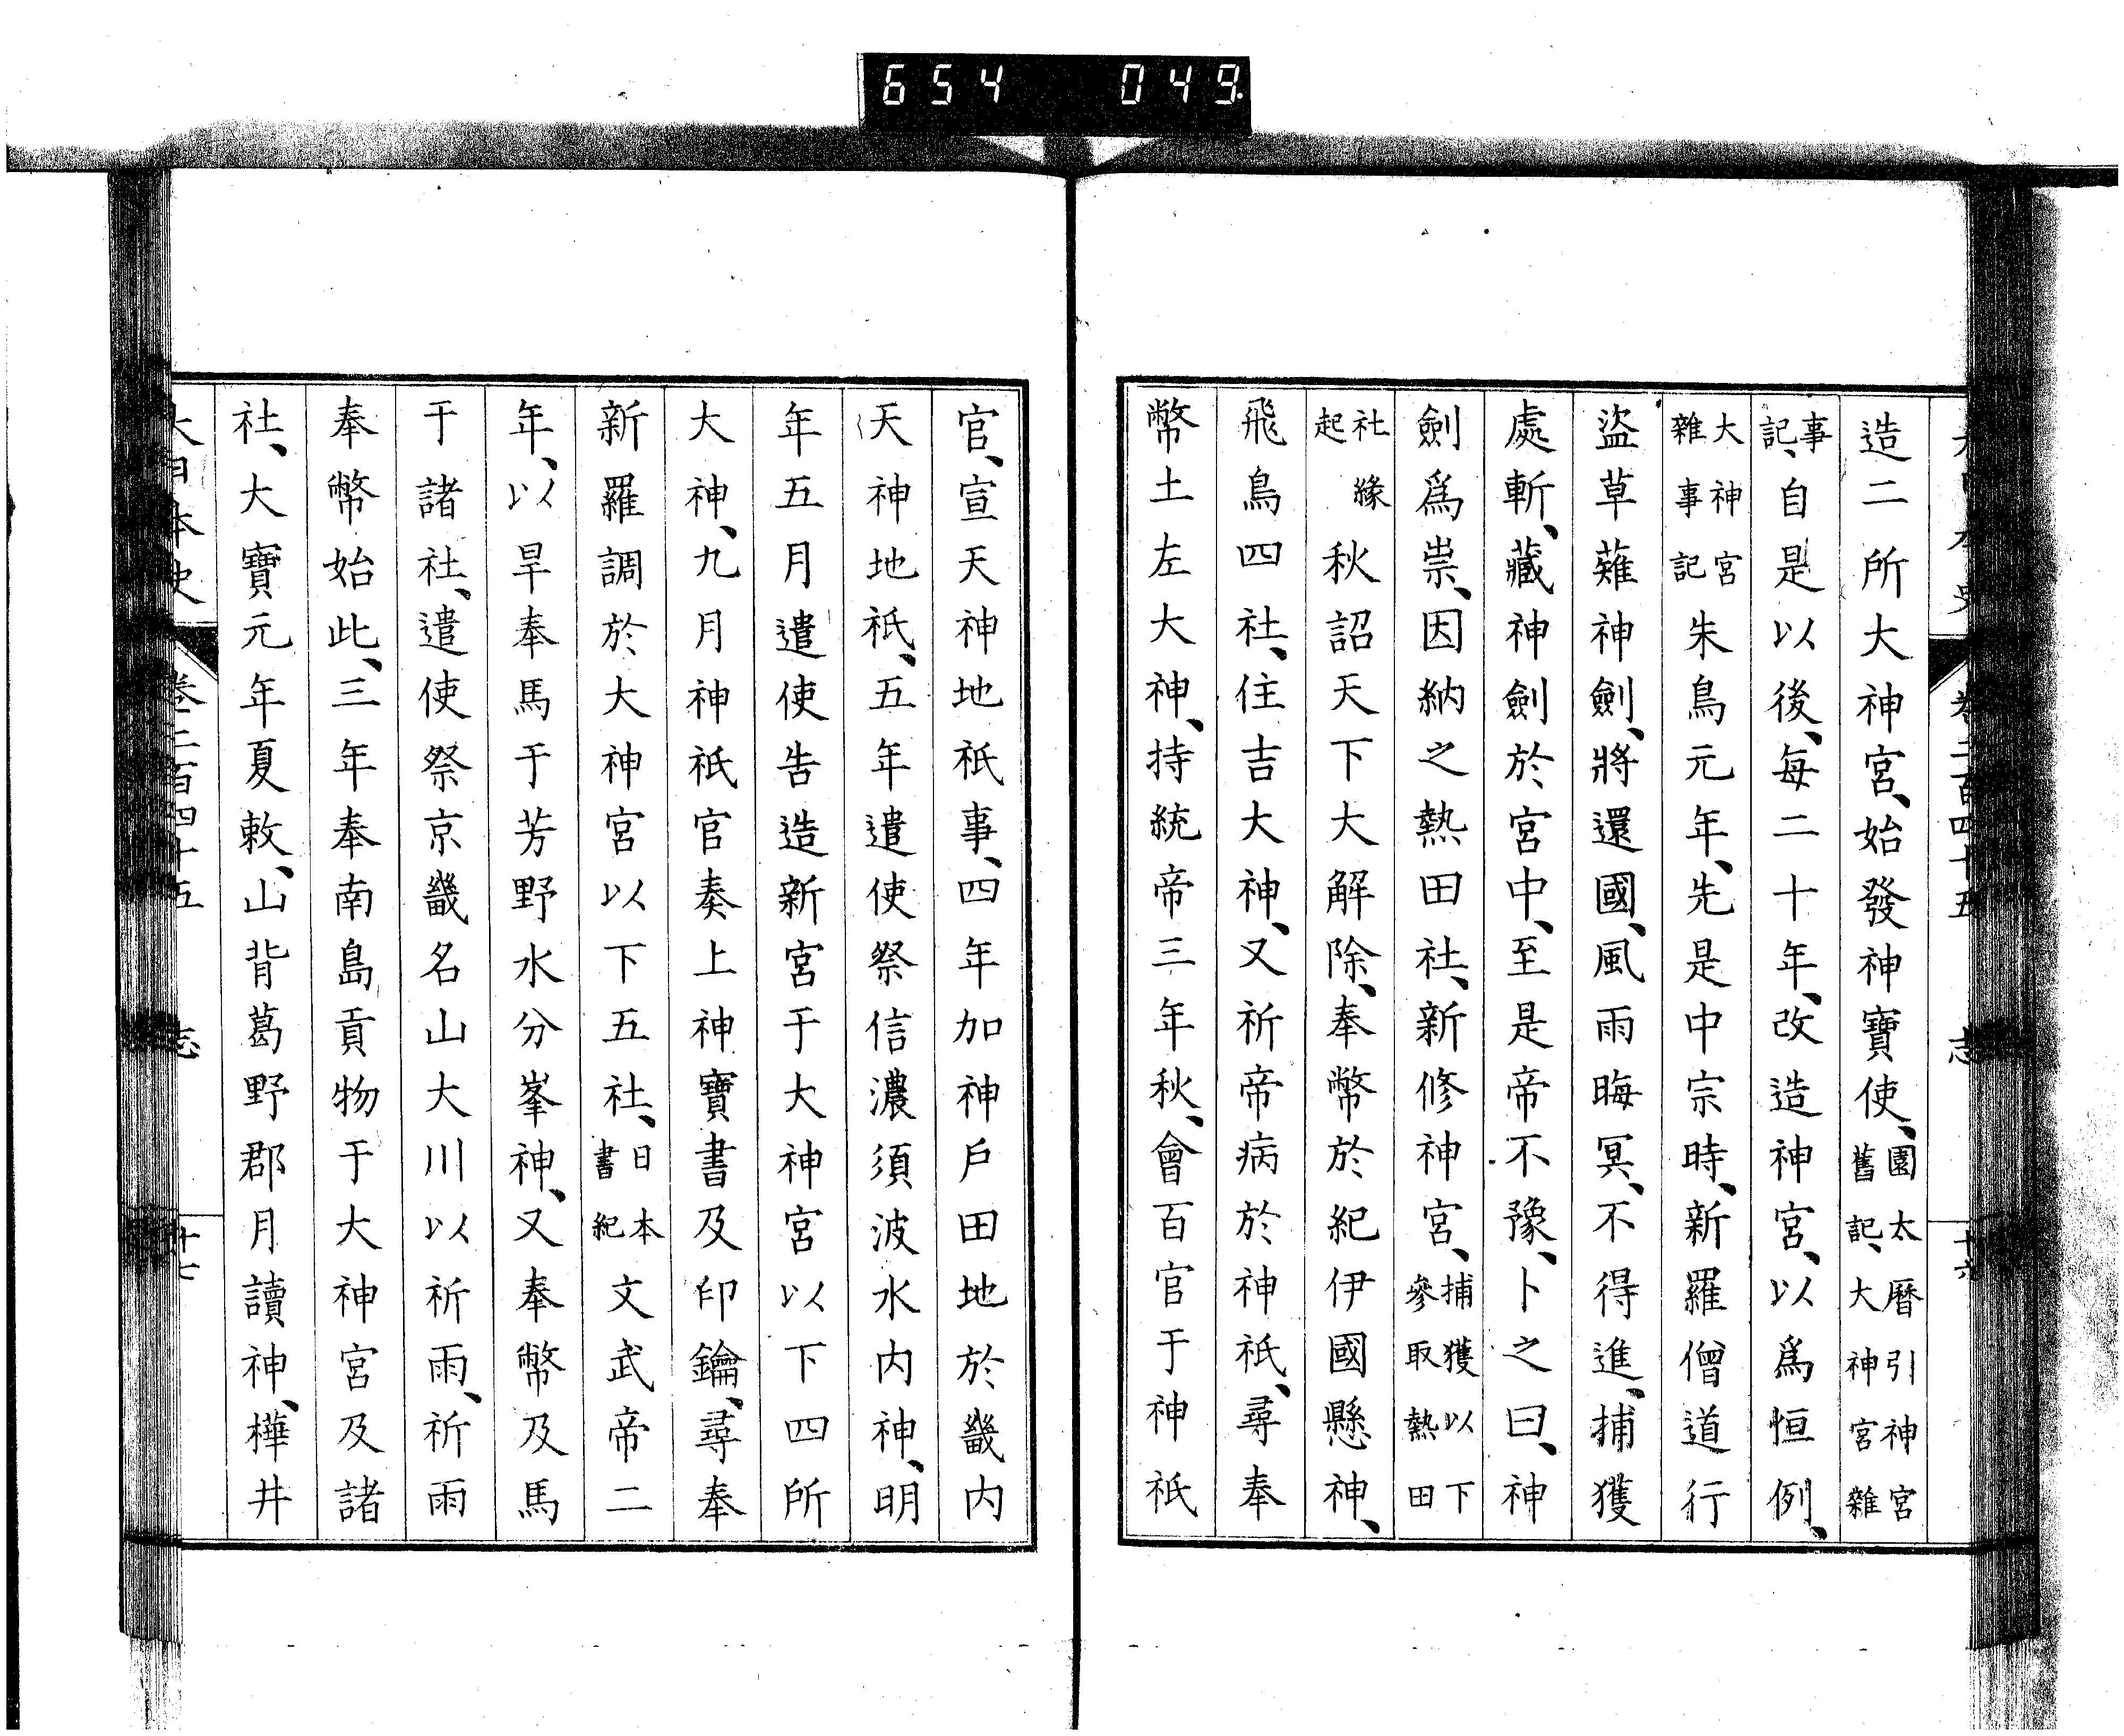 654 049
造二所大神宮、始發神寶使、園太曆引神宮雜
舊記、大神宮雜
事記、自是以後、每二十年、改造神宮、以爲恒例、
大神宮雜事記朱鳥元年、先是中宗時、新羅僧道行
盜草薙神劍、將還國、風雨晦冥、不得進、捕獲
處斬、藏神劍於宮中、至是帝不豫、卜之曰、神
劍爲祟、因納之熱田社、新修神宮、捕獲以下參取熱田
社緣起秋詔天下大解除、奉幣於紀伊國懸神、
飛鳥四社、住吉大神、又祈帝病於神祇、尋奉
幣土左大神、持統帝三年秋、會百官于神祇
官、宣天神地祇事、四年加神戶田地於畿內
天神地祇、五年遣使祭信濃須波水內神、明
年五月遣使告造新宮于大神宮以下四所
大神、九月神祇官奏上神寶書及印鑰、尋奉
新羅調於大神宮以下五社、日本書紀文武帝二
年、以旱奉馬于芳野水分峯神、又奉幣及馬
于諸社、遣使祭京畿名山大川以祈雨、祈雨
奉幣始此、三年奉南島貢物于大神宮及諸
社、大寶元年夏敕、山背葛野郡月讀神、樺井
大日本史 卷二百四十五 志 十七